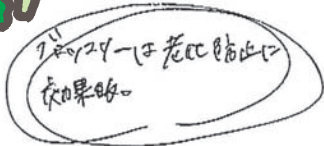 ブロッコリーは老化防止に
効果的。